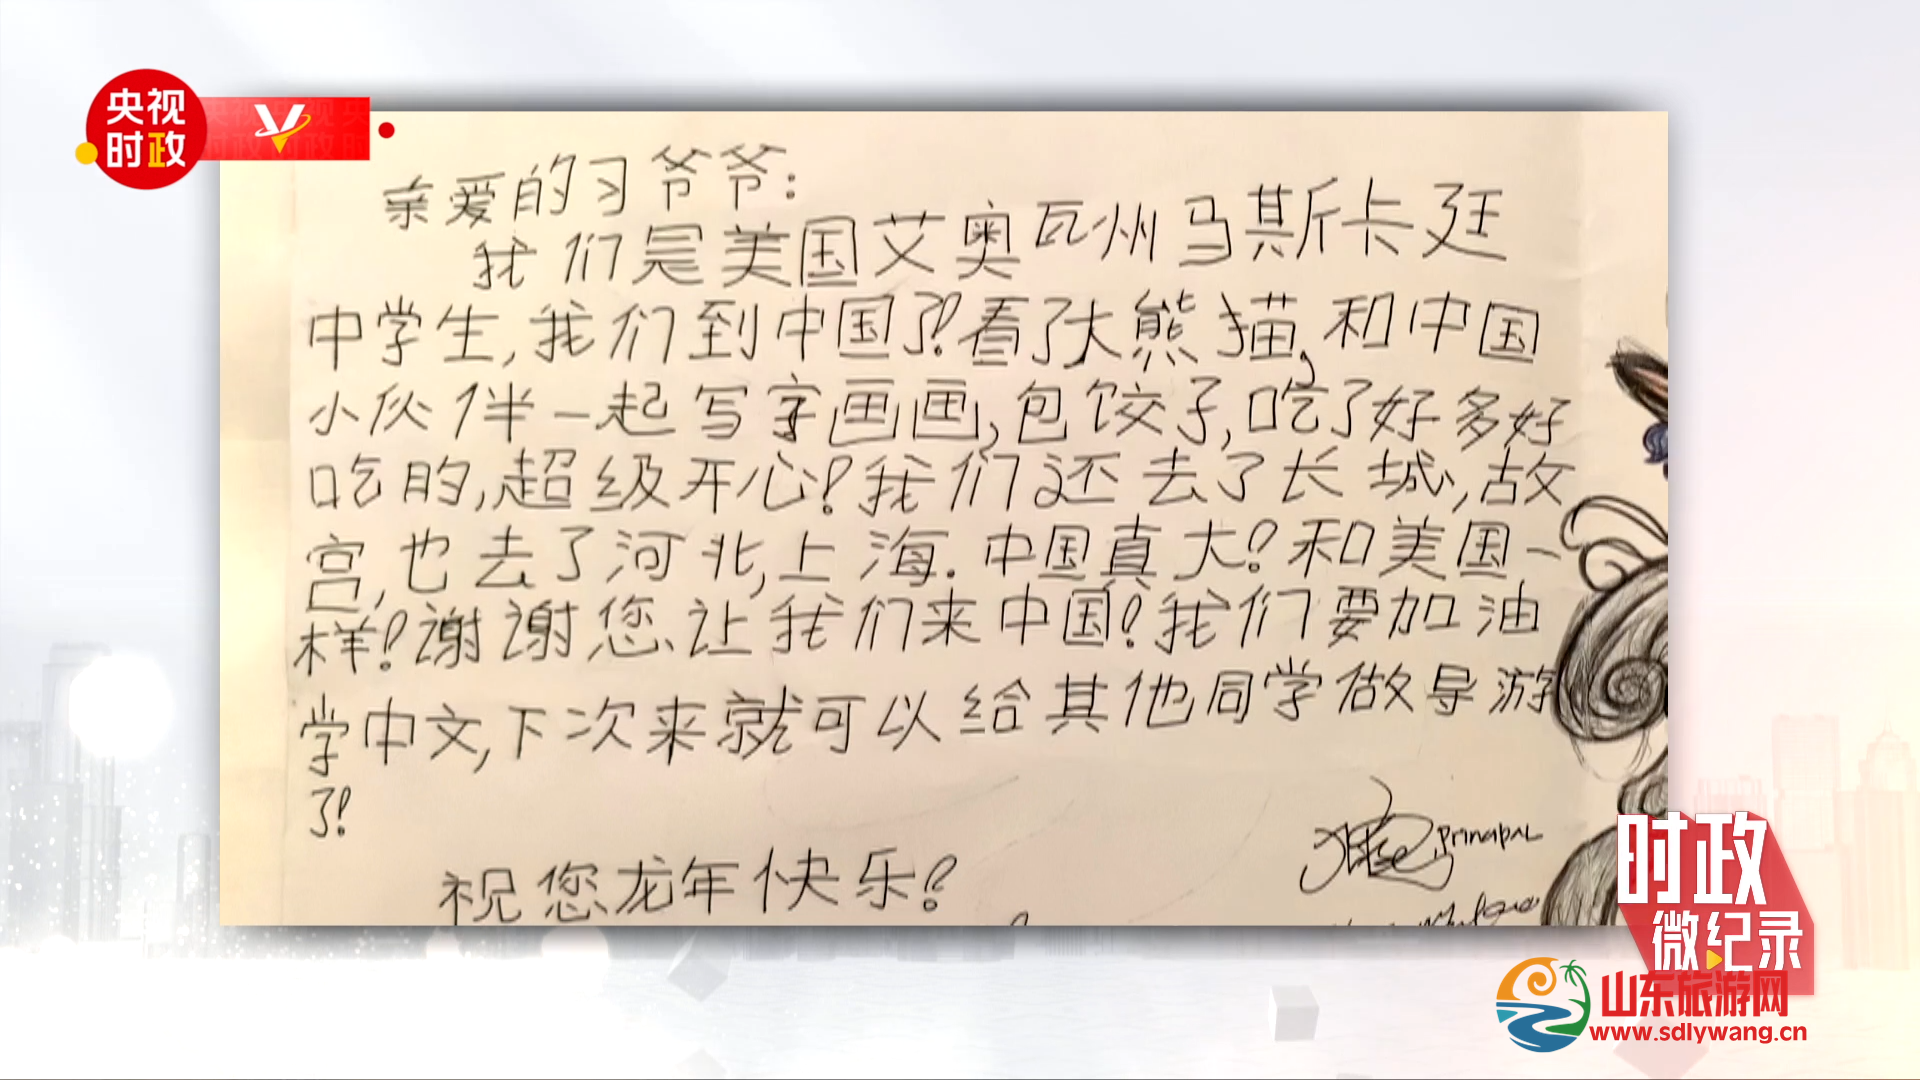 央视
时政
亲爱的习爷爷:
我们是美国艾奥瓦州马斯卡廷
中学生,我们到中国了!看了大熊猫,和中国
小伙伴一起写字画画,包饺子,吃了好多好
吃的,超级开心!我们还去了长城,故
宫,也去了河北,上海.中国真大!和美国一
样!谢谢您让我们来中国!我们要加油
学中文,下次来就可以给其他同学做导游
了!
principal
祝您龙年快乐!
时政
微纪录
山东旅游网
www.sdlywang.cn